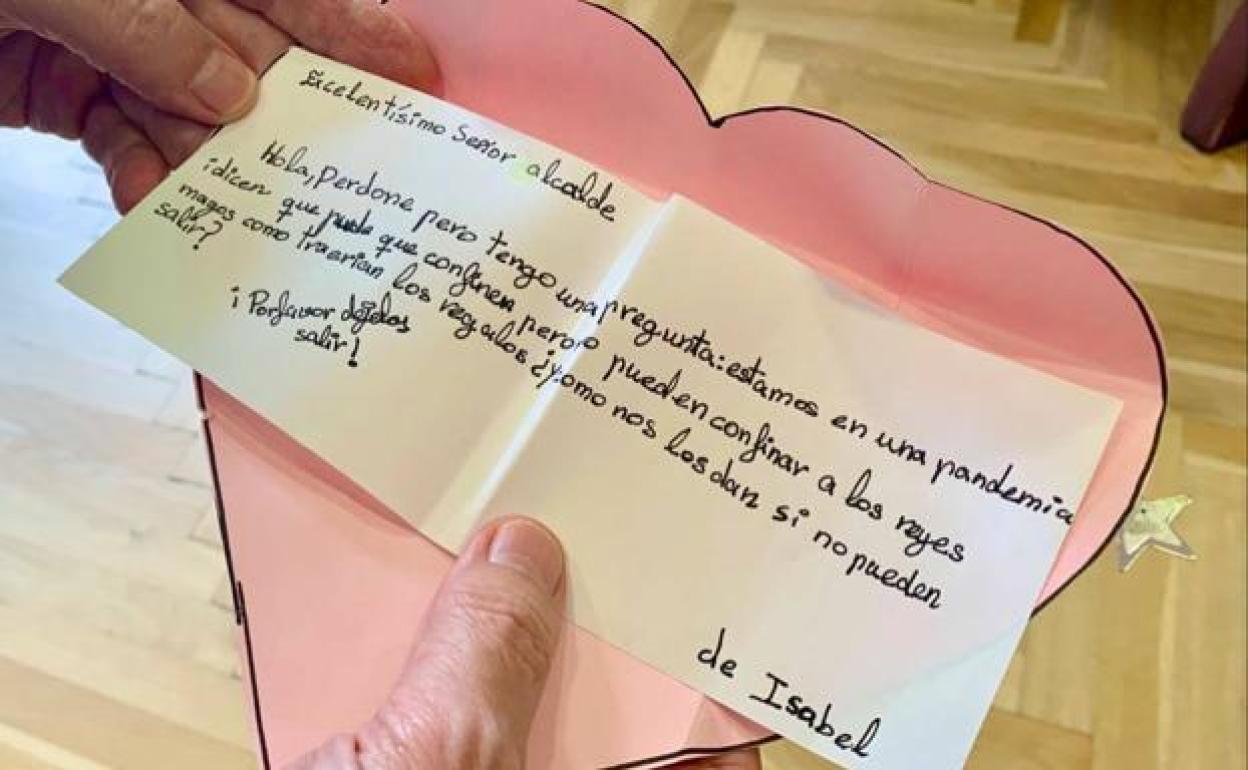 Excelentísimo Señor alcalde
Hola, perdone pero tengo una pregunta: estamos en una pandemia
¡dicen que puede que confinen pero pueden confinar a los reyes
magos como traerían los regalos ¿y como nos los dan si no pueden
salir?
¡Porfavor déjelos
salir!
de Isabel